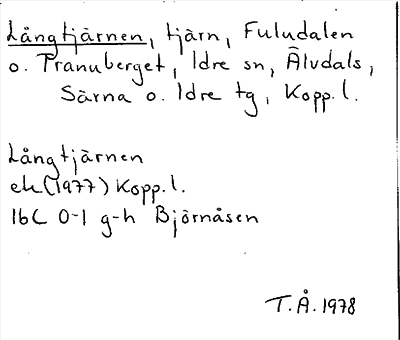 Långtjärnen, tjärn, Fuludalen
o. Tranuberget, Idre sn, Älvdals,
Särna o. Idre tg, Kopp. l.
Långtjärnen
ek (1977) Kopp. l.
16C 0-1 g-h Björnåsen
T.Å. 1978